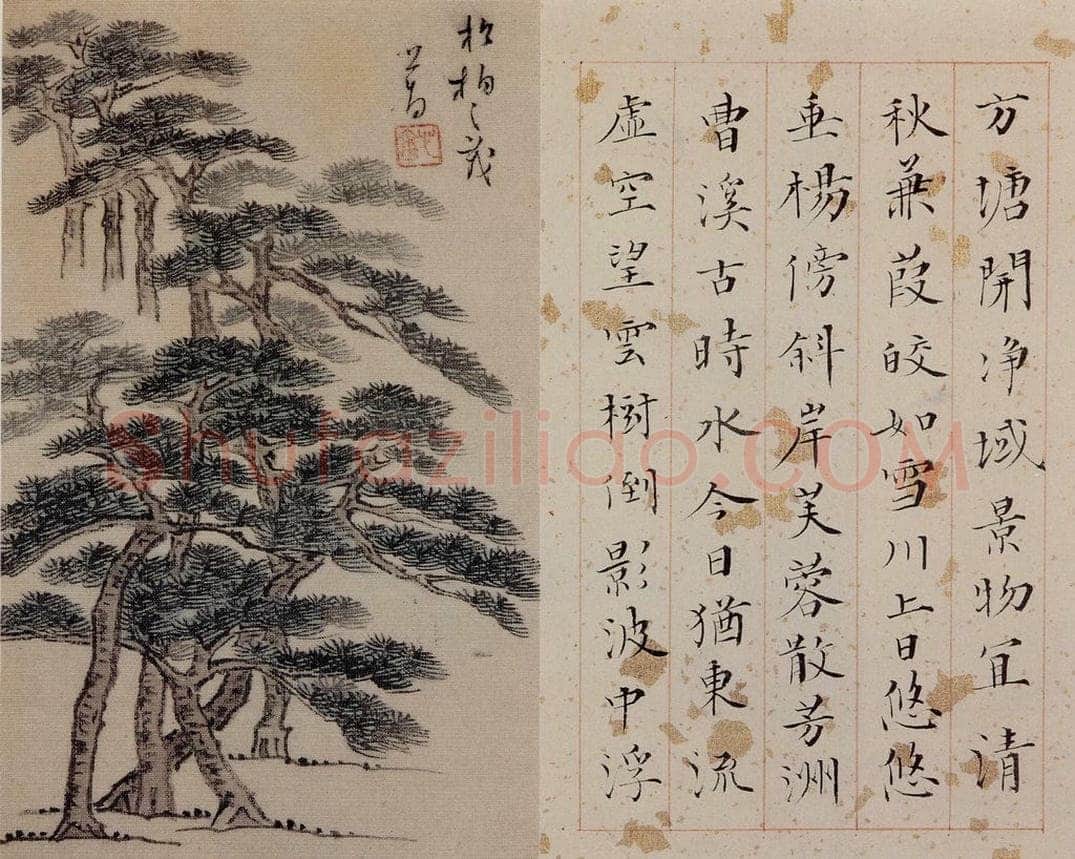 松柏之茂
心畬
方塘開净域景物宜清
秋蒹葭皎如雪川上日悠悠
垂楊傍斜岸芙蓉散芳洲
曹溪古時水今日猶東流
虛空望雲樹倒影波中浮
Shufaziliao.COM